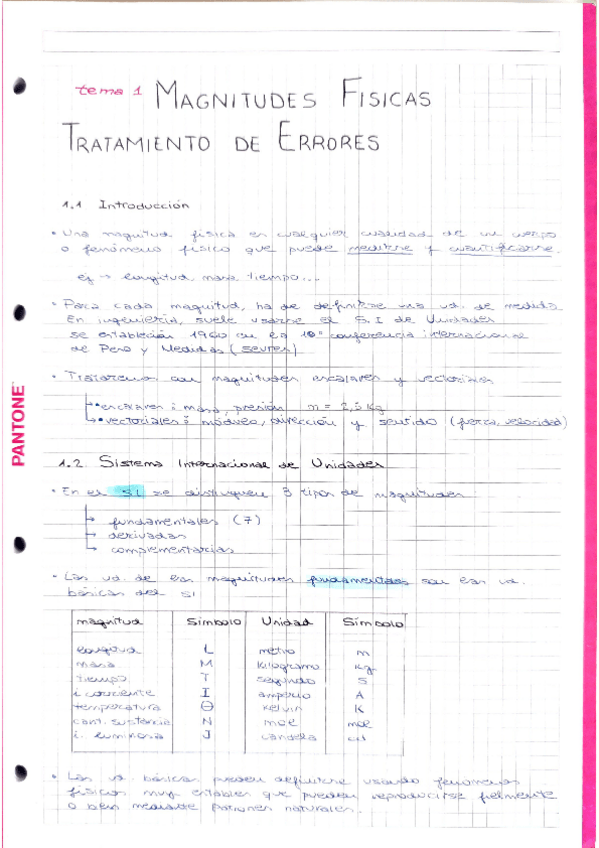 tema 1 MAGNITUDES FISICAS
TRATAMIENTO DE ERRORES
1.1 Introducción
• Una magnitud física es cualquier cualidad de un cuerpo
o fenómeno físico que puede medirse y cuantificarse.
ej → longitud, masa, tiempo...
• Para cada magnitud, ha de definirse una ud. de medida
En ingeniería, suele usarse el S.I de Unidades
se estableció en 1960 en la conferencia internacional
de Peso y Medidas (sevres)
• Trataremos con magnitudes escalares y vectoriales
escalares: masa, presión m = 2,5 Kg
vectoriales: módulo, dirección y sentido (fuerza, velocidad)
PANTONE
1.2 Sistema Internacional de Unidades
• En el S.I se distinguen 3 tipos de magnitudes
fundamentales (7)
derivadas
complementarias
• Las ud. de las magnitudes fundamentales son las ud.
básicas del SI
magnitud Símbolo Unidad Símbolo
longitud L metro m
masa M Kilogramo Kg
tiempo T segundo S
i corriente I amperio A
temperatura Θ kelvin K
cant. sustancia N mol mol
i. luminosa J candela cd
• Las ud. básicas pueden definirse usando fenómenos
físicos muy estables que pueden reproducirse fielmente
o bien mediante patrones naturales.